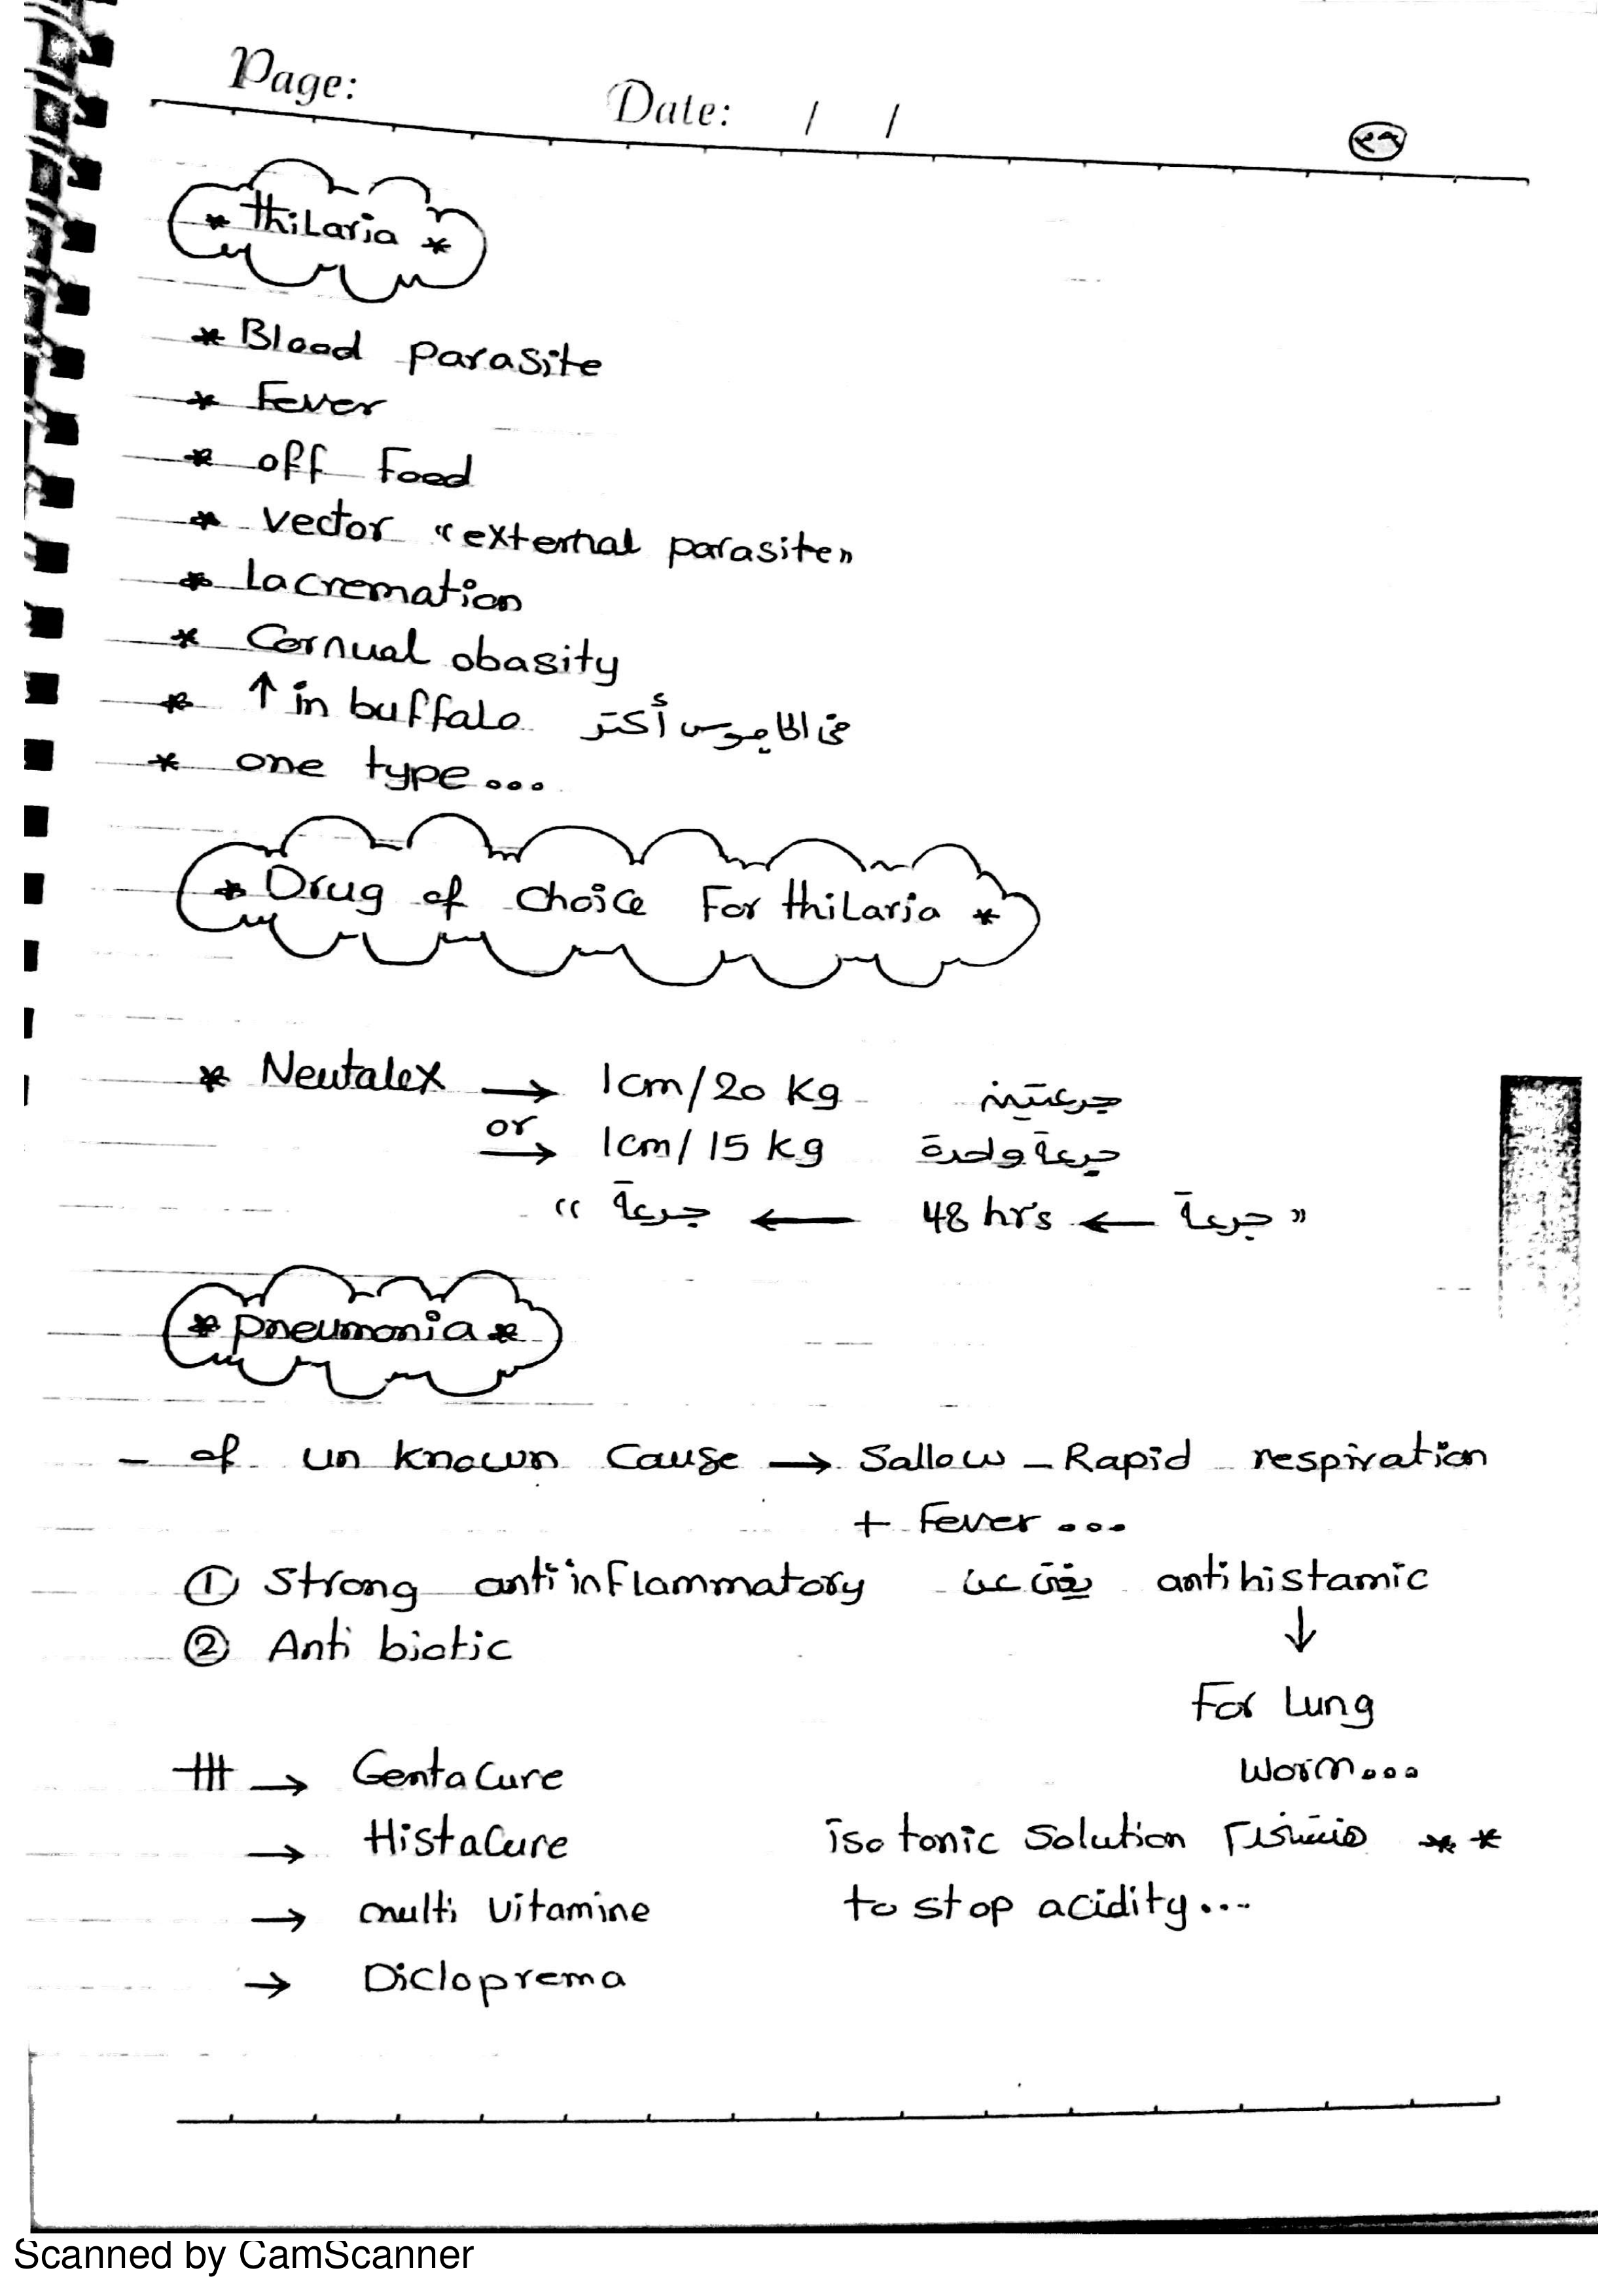 Page:
Date: / /
٢٩
* thilaria *
* Blood parasite
* Fever
* off Food
* vector "external parasite"
* Lacremation
* Cornual obasity
* ↑ in buffalo فى الجاموس أكتر
* one type...
* Drug of choice For thilaria *
* Neutalex → 1cm/20 Kg جرعتين
or → 1cm/15 kg جرعة واحدة
"جرعة ← 48 hrs ← جرعة"
* pneumonia *
- of un known Cause → Sallow - Rapid respiration
+ Fever...
① Strong antiinflammatory يفرق عن antihistamic
② Anti biotic
↓
For Lung
worm...
→ GentaCure
→ HistaCure
** isotonic Solution
→ multi vitamine
to stop acidity...
→ Dicloprema
Scanned by CamScanner